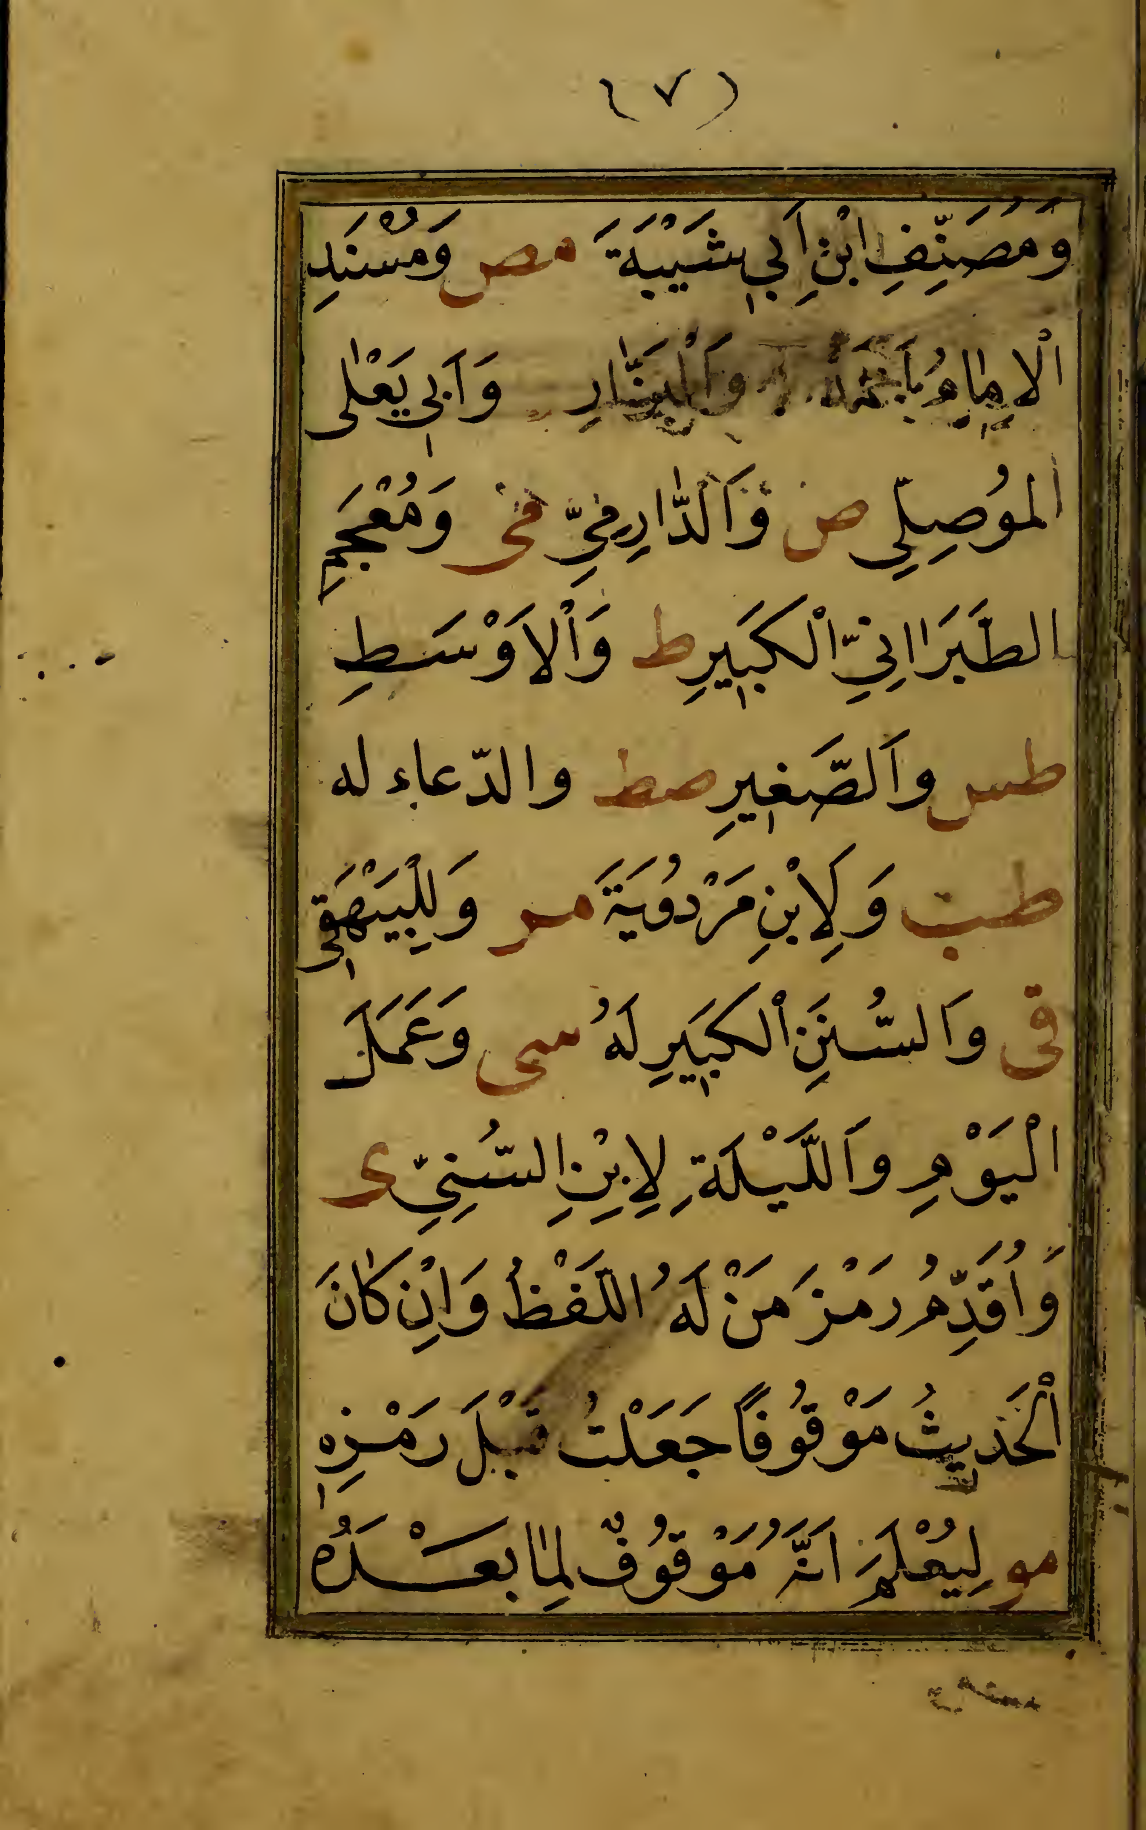 (٧)
وَمُصَنِّفِ ابْنِ اَبِي شَيْبَةَ مص وَمُسْنَدِ
الْاِمَامِ اَحْمَدَ وَالْبَزَّارِ وَاَبِي يَعْلٰى
الموُصِلِّي ص وَالدَّارِمِيِّ مى وَمُعْجَمِ
الطَّبَرَاانِيِّ الْكَبَيرِ ط وَالْاَوْسَطِ
طس وَالصَّغيرِ صط والدّعاء له
طب وَلِابْنِ مَرْدُويَةَ مر وَلِلْبَيْهَقي
قى وَالسُّنَنِ الْكَبَيرِ لَهُ سى وَعَمَلَ
الْيَوْمِ وَاللَّيْلَةِ لِابْنِ السُّنِيِّ ى
وَاُقَدِّمُ رَمْزَ مَنْ لَهُ اللَّفْظُ وَاِنْ كَانَ
الْحَديثُ مَوْقُوفًا جَعَلْتُ قَبْلَ رَمْزِهِ
مو لِيُعْلَمَ اَنَّهُ مَوْقُوفٌ لِمَا بَعْدَهُ